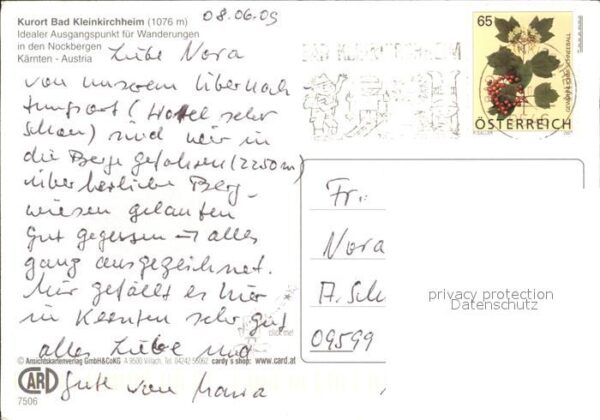 Kurort Bad Kleinkirchheim (1076 m)
Idealer Ausgangspunkt für Wanderungen
in den Nockbergen
Kärnten - Austria
08.06.09
Liebe Nora
von unserem Übernach
tungsort (Hotel sehr
schön) sind wir in
die Berge gefahren (2250m)
über herrliche Berg-
wiesen gelaufen
gut gegessen – alles
ganz ausgezeichnet.
Mir gefällt es hier
in Kärnten sehr gut
alles Liebe und
Gute von Maria
BAD KLEINKIRCHHEIM
65
GEWÖHNLICHER SCHNEEBALL
ÖSTERREICH
Fr.
Nora
A. Sch
09599
privacy protection
Datenschutz
click me!
© Ansichtskartenverlag GmbH&CoKG A 9500 Villach, Tel. 04242-55062 cardy's shop: www.card.at
CARD
7506